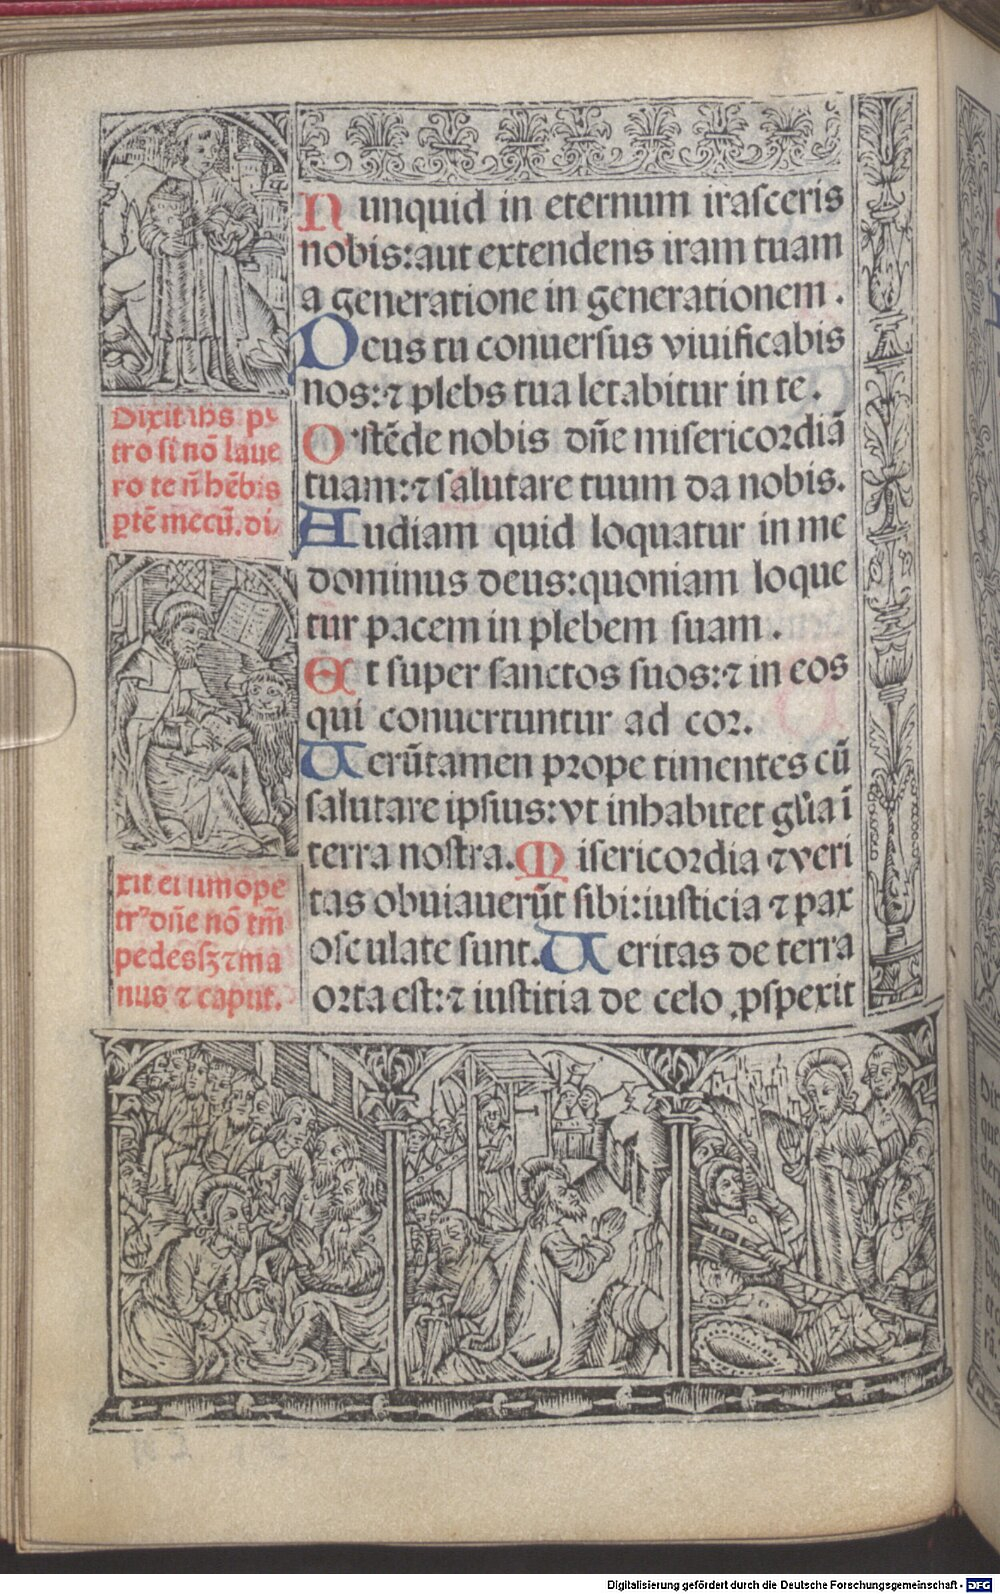 Nunquid in eternum irasceris
nobis:aut extendens iram tuam
a generatione in generationem.
Deus tu conuersus viuificabis
nos:⁊ plebs tua letabitur in te.
Ostēde nobis dñe misericordiā
tuam:⁊ salutare tuum da nobis.
Audiam quid loquatur in me
dominus deus:quoniam loque
tur pacem in plebem suam.
Et super sanctos suos:⁊ in eos
qui conuertuntur ad cor.
Uerūtamen prope timentes cū
salutare ipsius:vt inhabitet gl'ia ī
terra nostra. Misericordia ⁊ veri
tas obuiauerūt sibi:iusticia ⁊ pax
osculate sunt. Ueritas de terra
orta est:⁊ iustitia de celo ꝓspexit
Dixit ihs pe
tro si nō laue
ro te ñ hēbis
ptē mecū. di
xit ei simon pe
tr⁹ dñe nō tm̄
pedes sꝫ ⁊ ma
nus ⁊ caput.
Digitalisierung gefördert durch die Deutsche Forschungsgemeinschaft - DFG